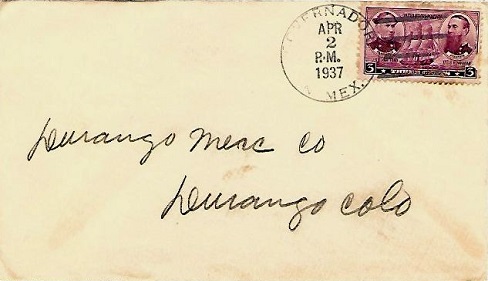 GOBERNADOR
APR
2
P.M.
1937
N. MEX.
3 3
Durango Merc Co
Durango Colo